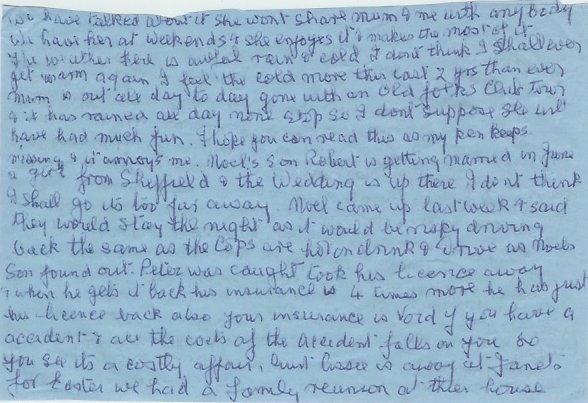 we have talked about it she wont share mum & me with any body
We have her at weekends & she enjoyes it & makes the most of it
The weather here is awful rain & cold I dont think I shall ever
get warm again I feel the cold more this last 2 yrs than ever
mum is out all day to day gone with an old folks Club Tour
& it has rained all day none stop so I dont suppose she will
have had much fun. I hope you can read this as my pen keeps
missing & it annoys me. Noel's Son Robert is getting married in June
a girl from Sheffield & the Wedding is up there I dont think
I shall go its too far away Noel came up last week & said
they would stay the night as it would be risky driving
back the same as the Cops are hot on drink & drive as Noels
Son found out. Peter was caught took his licence away
& when he gets it back his insurance is 4 times more he has just
his licence back also your insurance is void if you have a
accident & all the costs of the accident falls on you so
you see its a costly affair, Aunt is away at Janets
for Easter we had a family reunion at their house